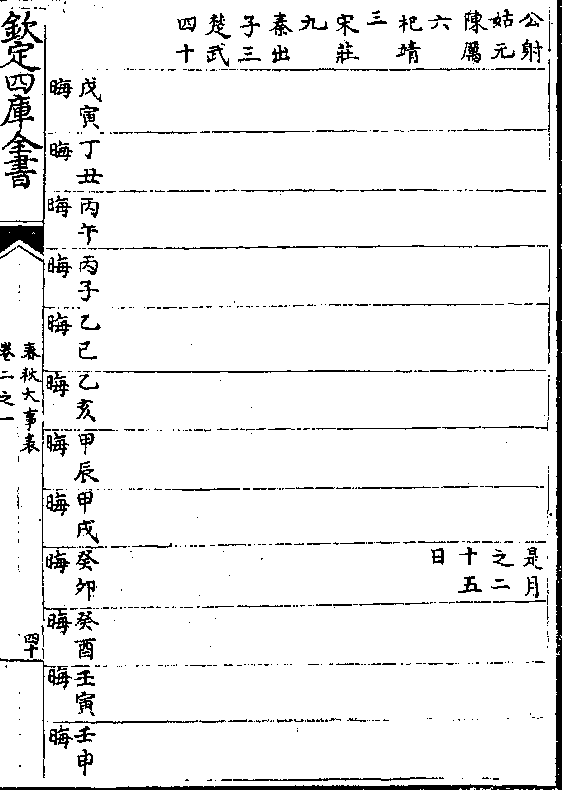 公射
姑元
陳厲
六
杞靖
三
宋莊
九
秦出
子三
楚武
四十
戊寅
晦
丁丑
晦
丙午
晦
丙子
晦
乙巳
晦
乙亥
晦
甲辰
晦
甲戌
晦
是月
之二
十五
日
癸卯
晦
癸酉
晦
壬寅
晦
壬申
晦
欽定四庫全書
春秋大事表
卷二之一
四十